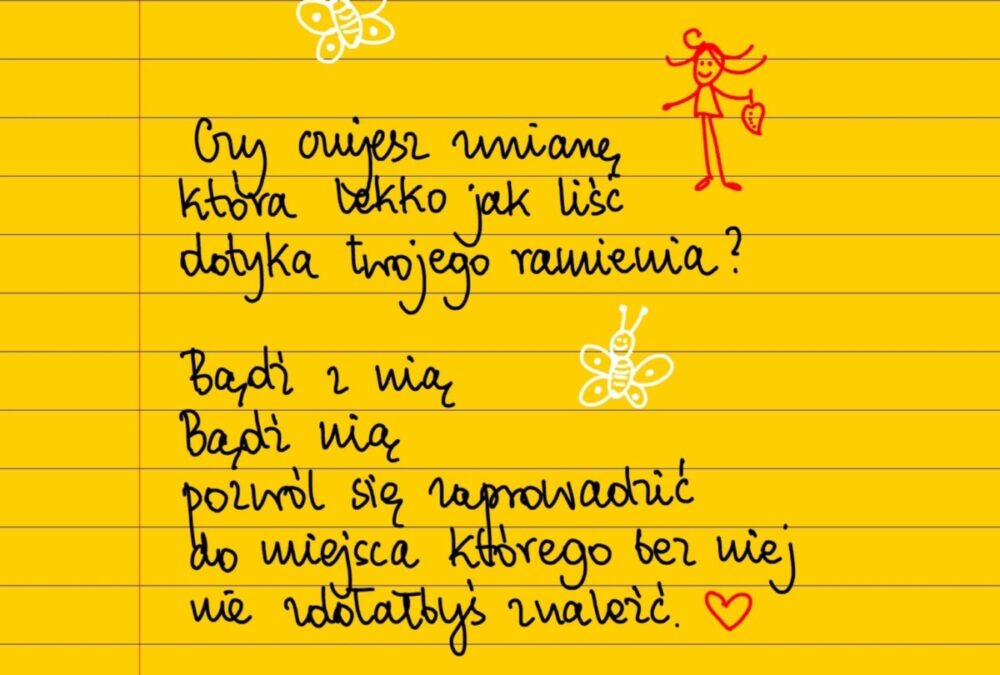 Czy czujesz zmianę
która lekko jak liść
dotyka twojego ramienia?
Bądź z nią
Bądź nią
pozwól się zaprowadzić
do miejsca którego bez niej
nie zdołałbyś znaleźć.